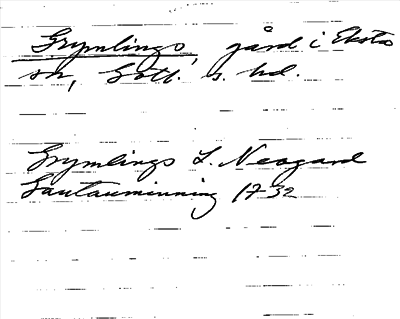 Grymlings, gård i Eksta
sn, Gotl. s. hd.
Grymlings L. Neogard
Gautauminning 1732